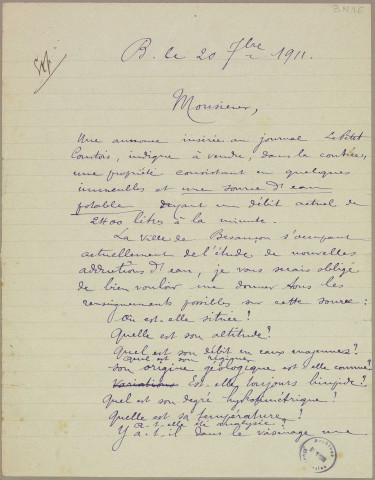 B. le 20 7bre 1911.
Monsieur,
Une annonce insérée au journal Le Petit
Comtois, indique à vendre, dans la contrée,
une propriété consistant en quelques
immeubles et une source d'eau
potable ayant un débit actuel de
2400 litres à la minute.
La Ville de Besançon s'occupant
actuellement de l'étude de nouvelles
adductions d'eau, je vous serais obligé
de bien vouloir me donner tous les
renseignements possibles sur cette source:
Où est-elle située?
Quelle est son altitude?
Quel est son débit en eaux moyennes?
quel est son régime
son origine géologique est-elle connue?
Variations Est-elle toujours limpide?
Quel est son degré hydrotimétrique?
Quelle est sa température?
a-t-elle été analysée?
Y a-t-il dans le voisinage une